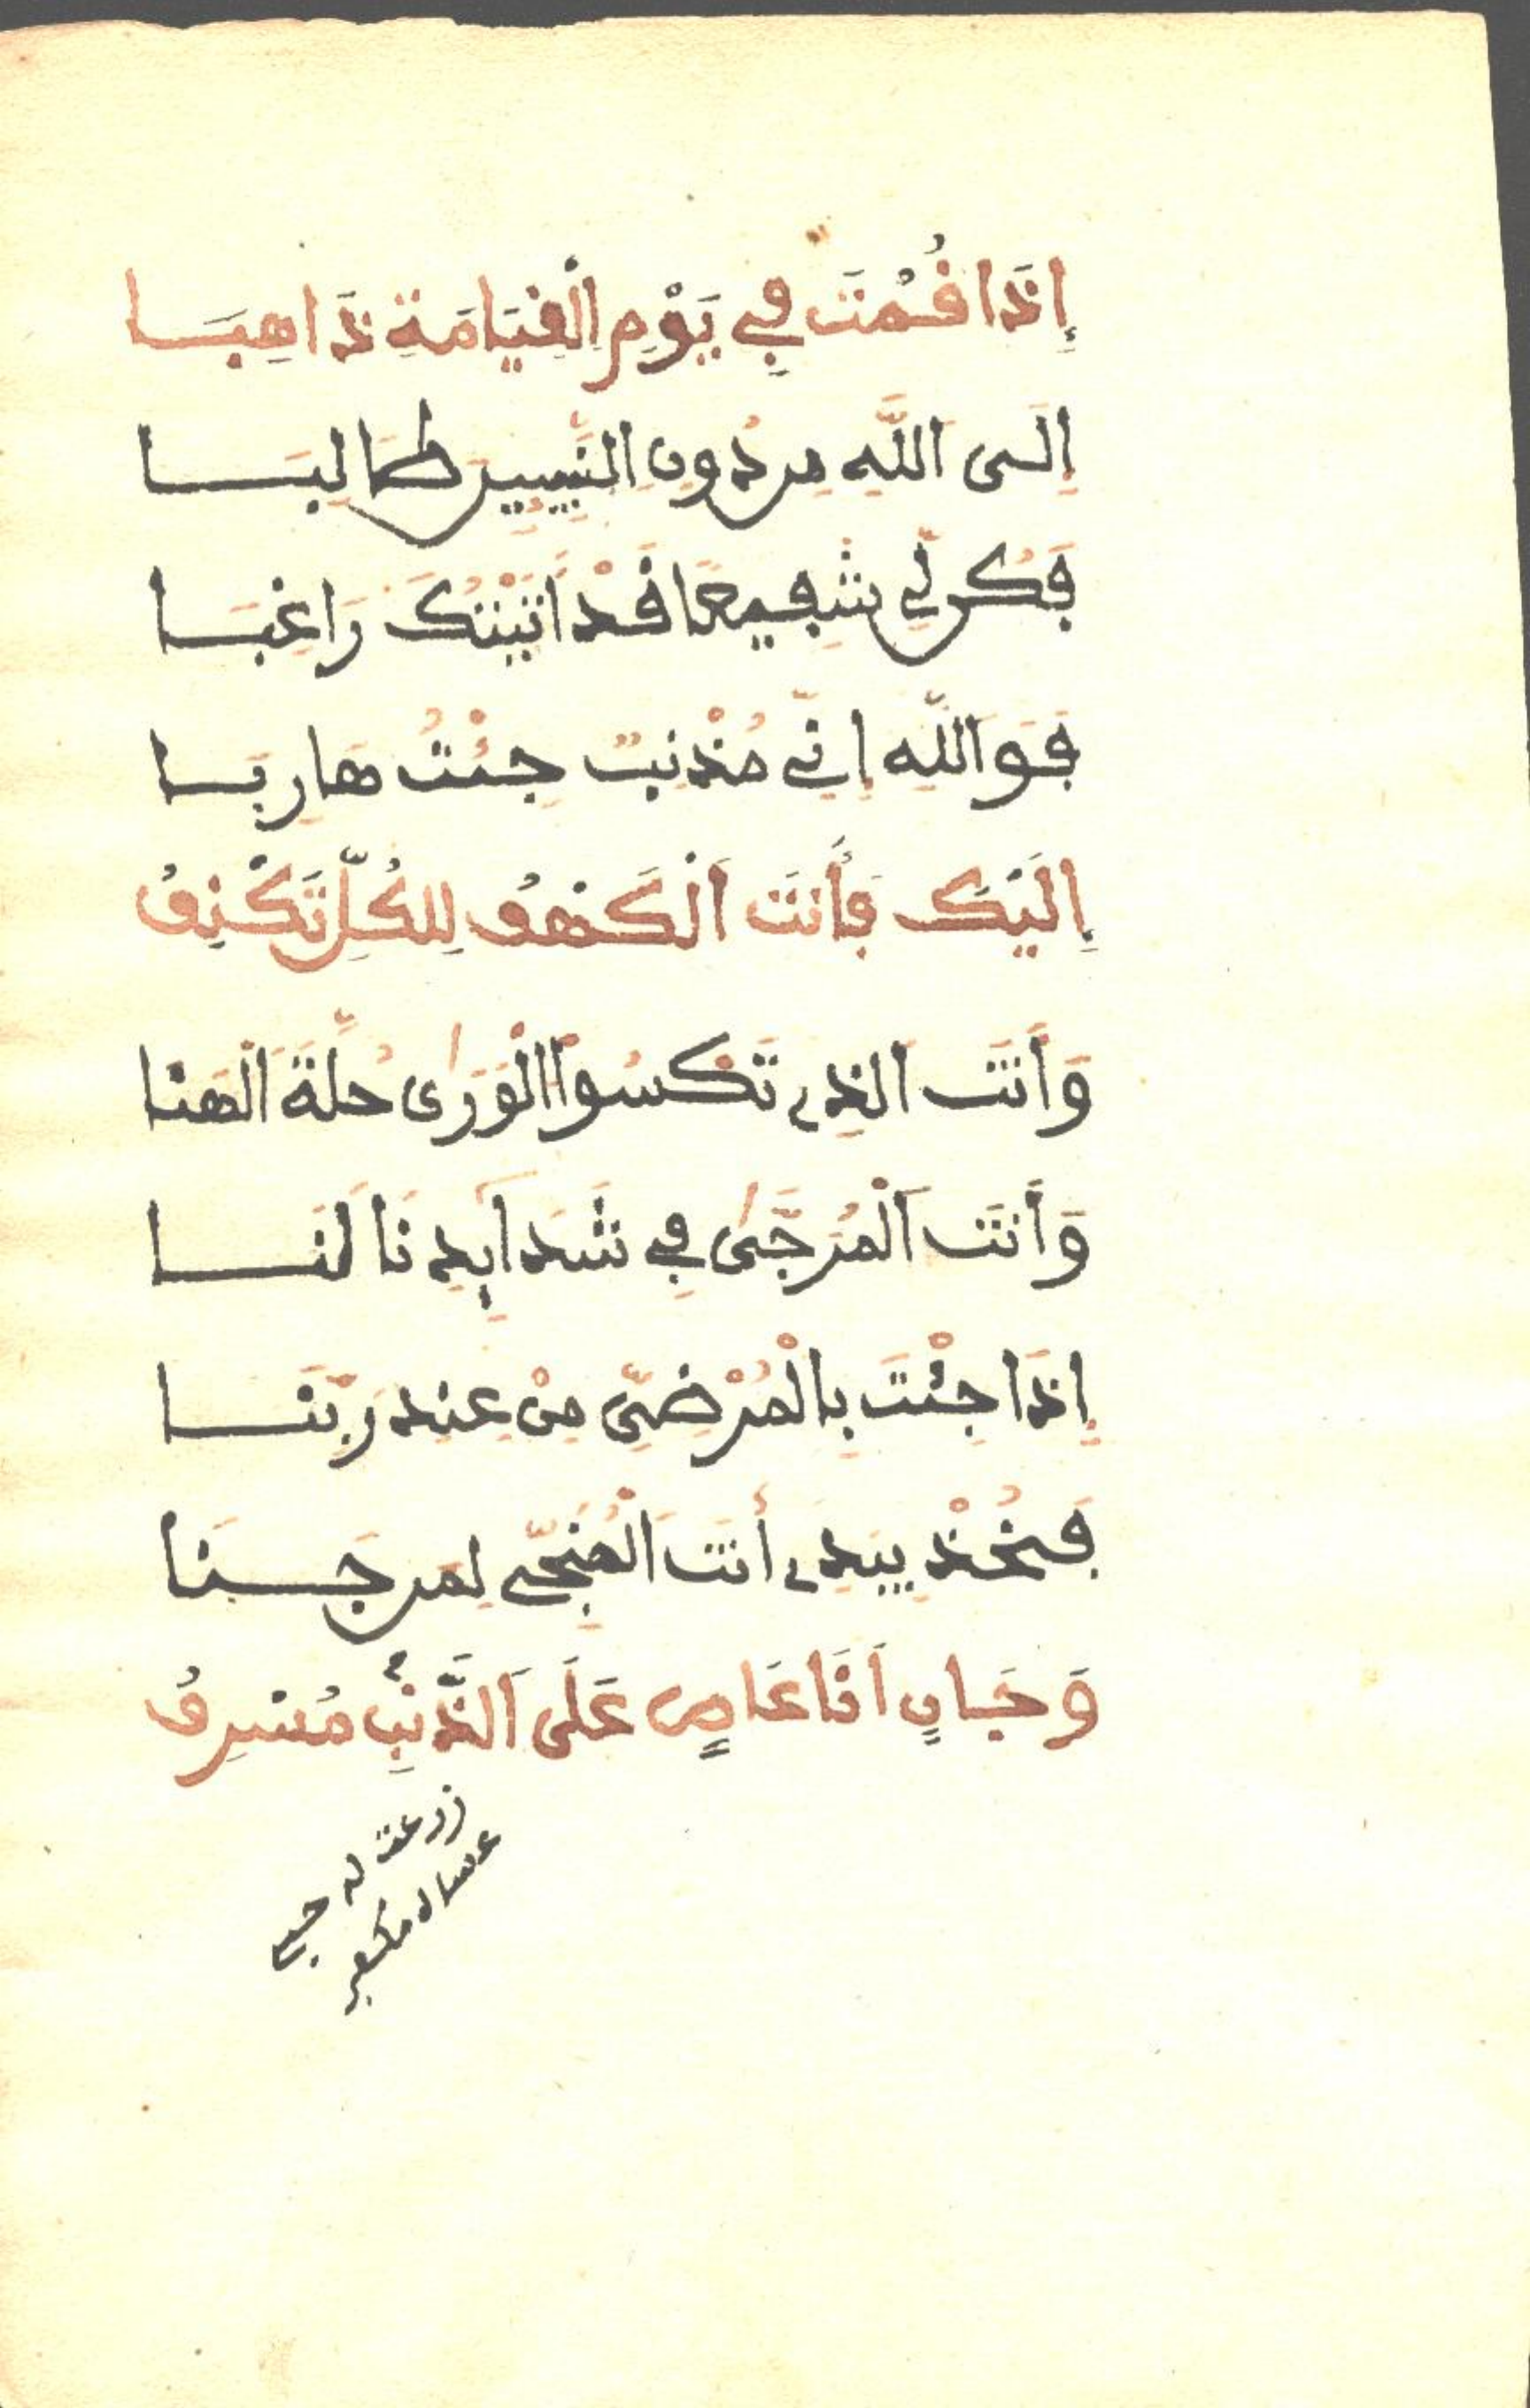 إِذَا قُمْتَ فِي يَوْمِ الْقِيَامَةِ ذَاهِبَا
إِلَى اللَّهِ مِن دُونِ النَّبِيِّينَ طَالِبَا
فَكُن لِّي شَفِيعًا قَدْ أَتَيْتُكَ رَاغِبَا
فَوَاللَّهِ إِنِّي مُذْنِبٌ جِئْتُ هَارِبَا
إِلَيْكَ فَأَنتَ الْكَهْفُ لِلْكُلِّ تَكْنِفُ
وَأَنتَ الذِي تَكْسُوا الْوَرَىٰ حُلَّةَ الْهَنَا
وَأَنتَ الْمُرَجَّىٰ فِي شَدَايِدِنَا لَنَا
إِذَا جِئْتَ بِالْمُرْضِيِّ مِنْ عِندِ رَبِّنَا
فَخُذْ بِيَدِي أَنتَ الْمُنَجِّي لِمَن جَنَا
وَجَانٍ أَنَا عَاصٍ عَلَى الذَّنْبِ مُسْرِفُ
زرعت له حبي